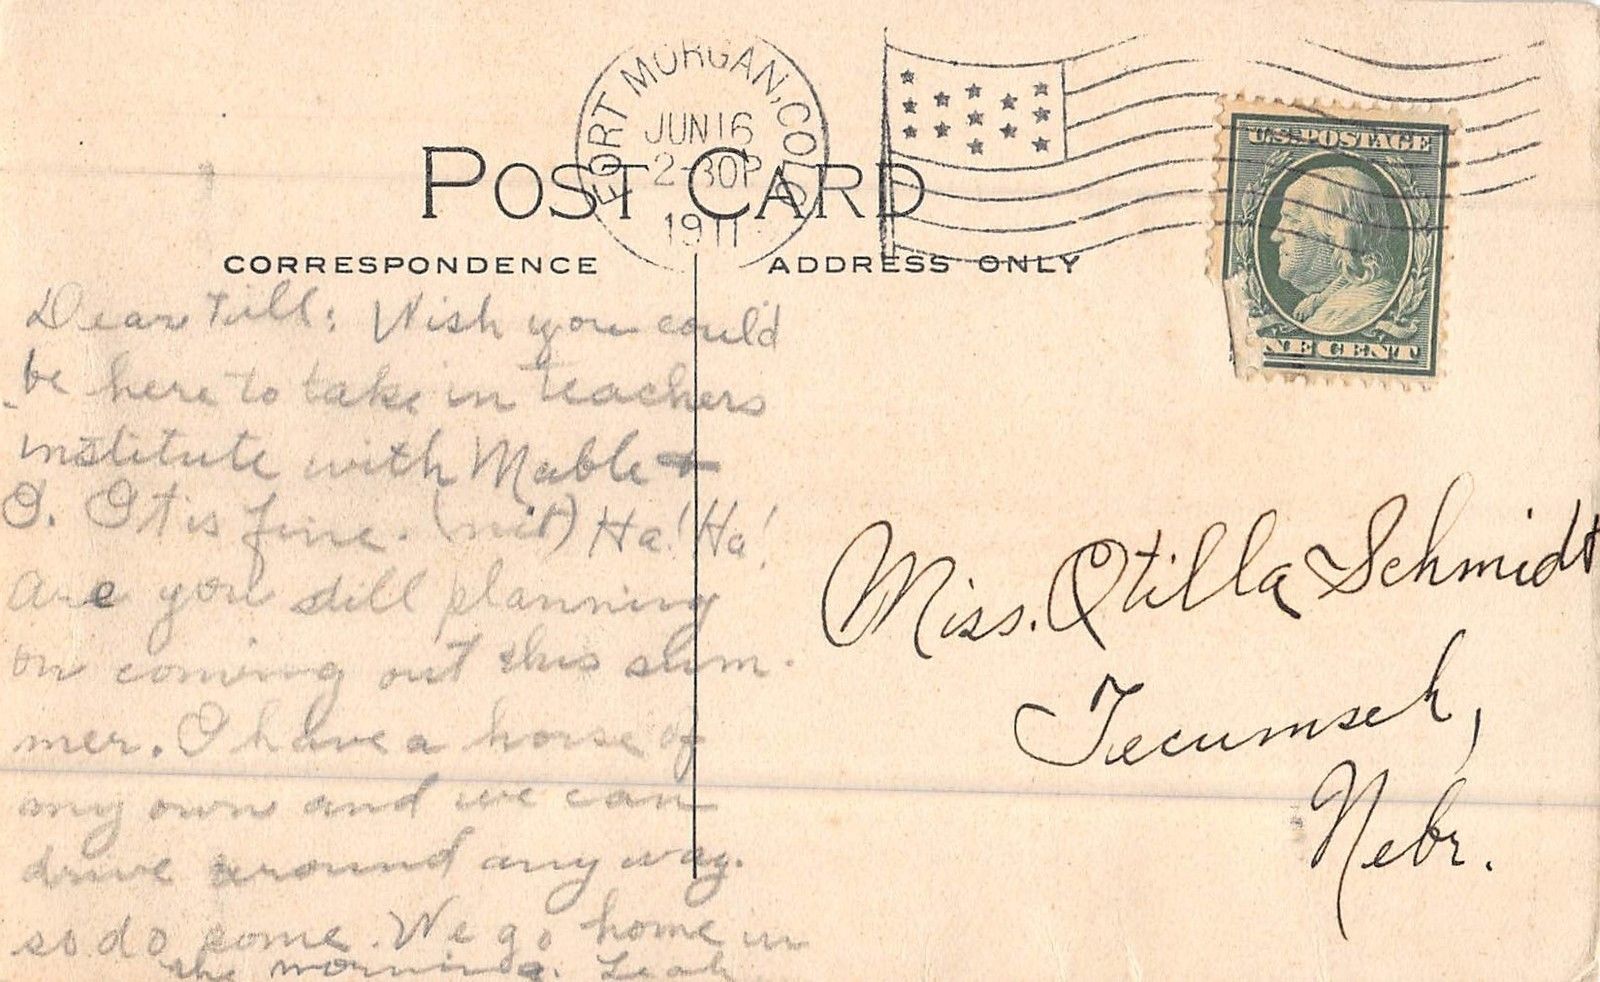 FORT MORGAN, COLO.
JUN 16
2-30P
1911
U.S. POSTAGE
NE CENT
POST CARD
CORRESPONDENCE
ADDRESS ONLY
Dear Till: Wish you could
be here to take in teachers
institute with Mable +
I. It is fine. (nit) Ha! Ha!
Are you still planning
on coming out this sum-
mer. I have a horse of
my own and we can
drive around any way.
so do come. We go home in
the morning. Leah
Miss. Otilla Schmidt
Tecumseh,
Nebr.